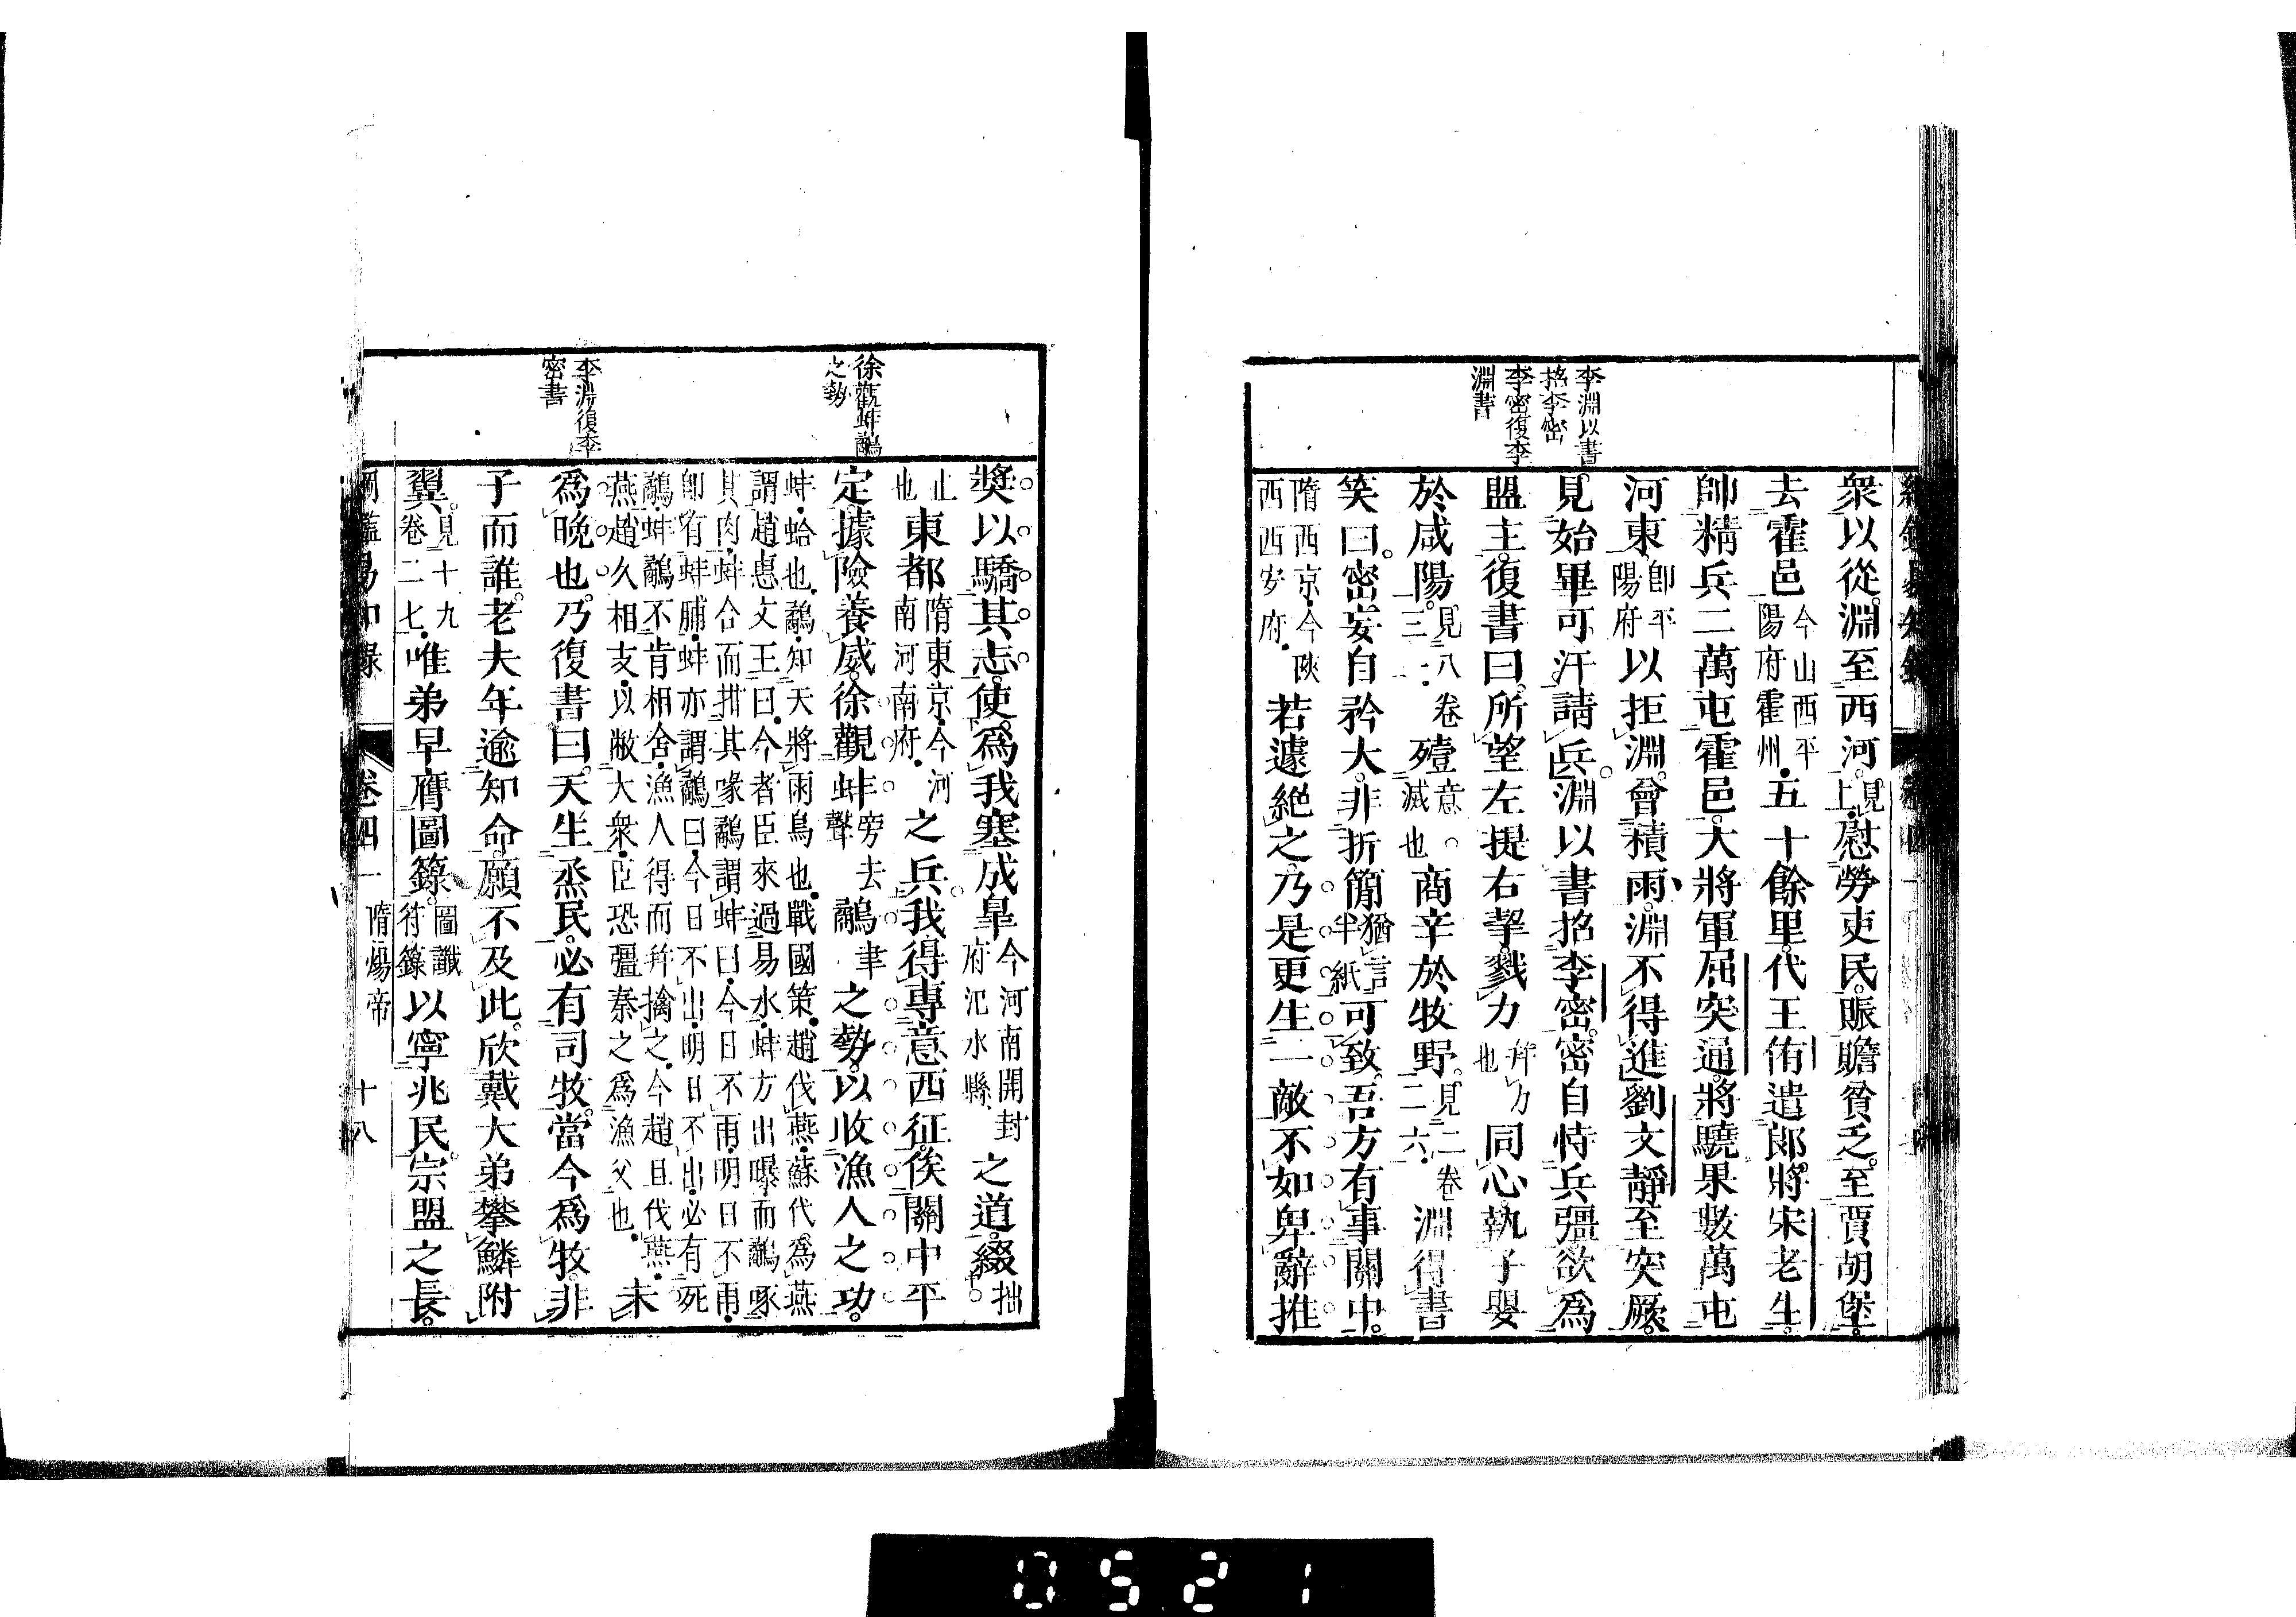 李淵以書
招李密
李密復李
淵書
衆以從淵至西河見上慰勞吏民賑贍貧乏至賈胡堡
去霍邑今山西平陽府霍州五十餘里代王侑遣郎將宋老生
帥精兵二萬屯霍邑大將軍屈突通將驍果數萬屯
河東卽平陽府以拒淵會積雨淵不得進劉文靜至突厥
見始畢可汗請兵淵以書招李密密自恃兵彊欲爲
盟主復書曰所望左提右挈戮力并力也同心執子嬰
於咸陽見八卷三一殪意滅也商辛於牧野見二卷二六淵得書
笑曰密妄自矜大非折簡猶言半紙可致吾方有事關中
隋西京今陝西西安府若遽絕之乃是更生一敵不如卑辭推
徐觀蚌鷸
之勢
李淵復李
密書
獎以驕其志使爲我塞成皐今河南開封府氾水縣之道綴拙
止也東都隋東京今河南河南府之兵我得專意西征俟關中平
定據險養威徐觀蚌旁去聲鷸聿之勢以收漁人之功
蚌蛤也鷸知天將雨鳥也戰國策趙伐燕蘇代爲燕
謂趙惠文王曰今者臣來過易水蚌方出曝而鷸啄
其肉蚌合而拑其喙鷸謂蚌曰今日不雨明日不雨
卽有蚌脯蚌亦謂鷸曰今日不出明日不出必有死
鷸蚌鷸不肯相舍漁人得而并擒之今趙且伐燕
燕趙久相支以敝大衆臣恐彊秦之爲漁父也未
爲晚也乃復書曰天生烝民必有司牧當今爲牧非
子而誰老夫年逾知命願不及此欣戴大弟攀鱗附
翼見十九卷二七唯弟早膺圖籙圖讖符籙以寧兆民宗盟之長
綱鑑易知錄 卷四一 隋煬帝 十八
0521